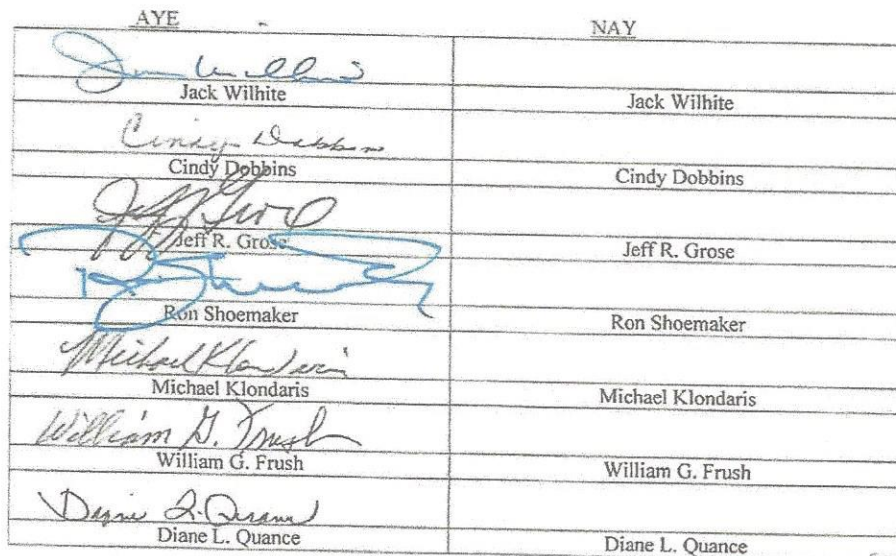 AYE NAY
Jack Wilhite Jack Wilhite
Cindy Dobbins
Cindy Dobbins Cindy Dobbins
Jeff R. Grose Jeff R. Grose
Ron Shoemaker Ron Shoemaker
Michael Klondaris
Michael Klondaris Michael Klondaris
William G. Frush
William G. Frush William G. Frush
Diane L. Quance
Diane L. Quance Diane L. Quance